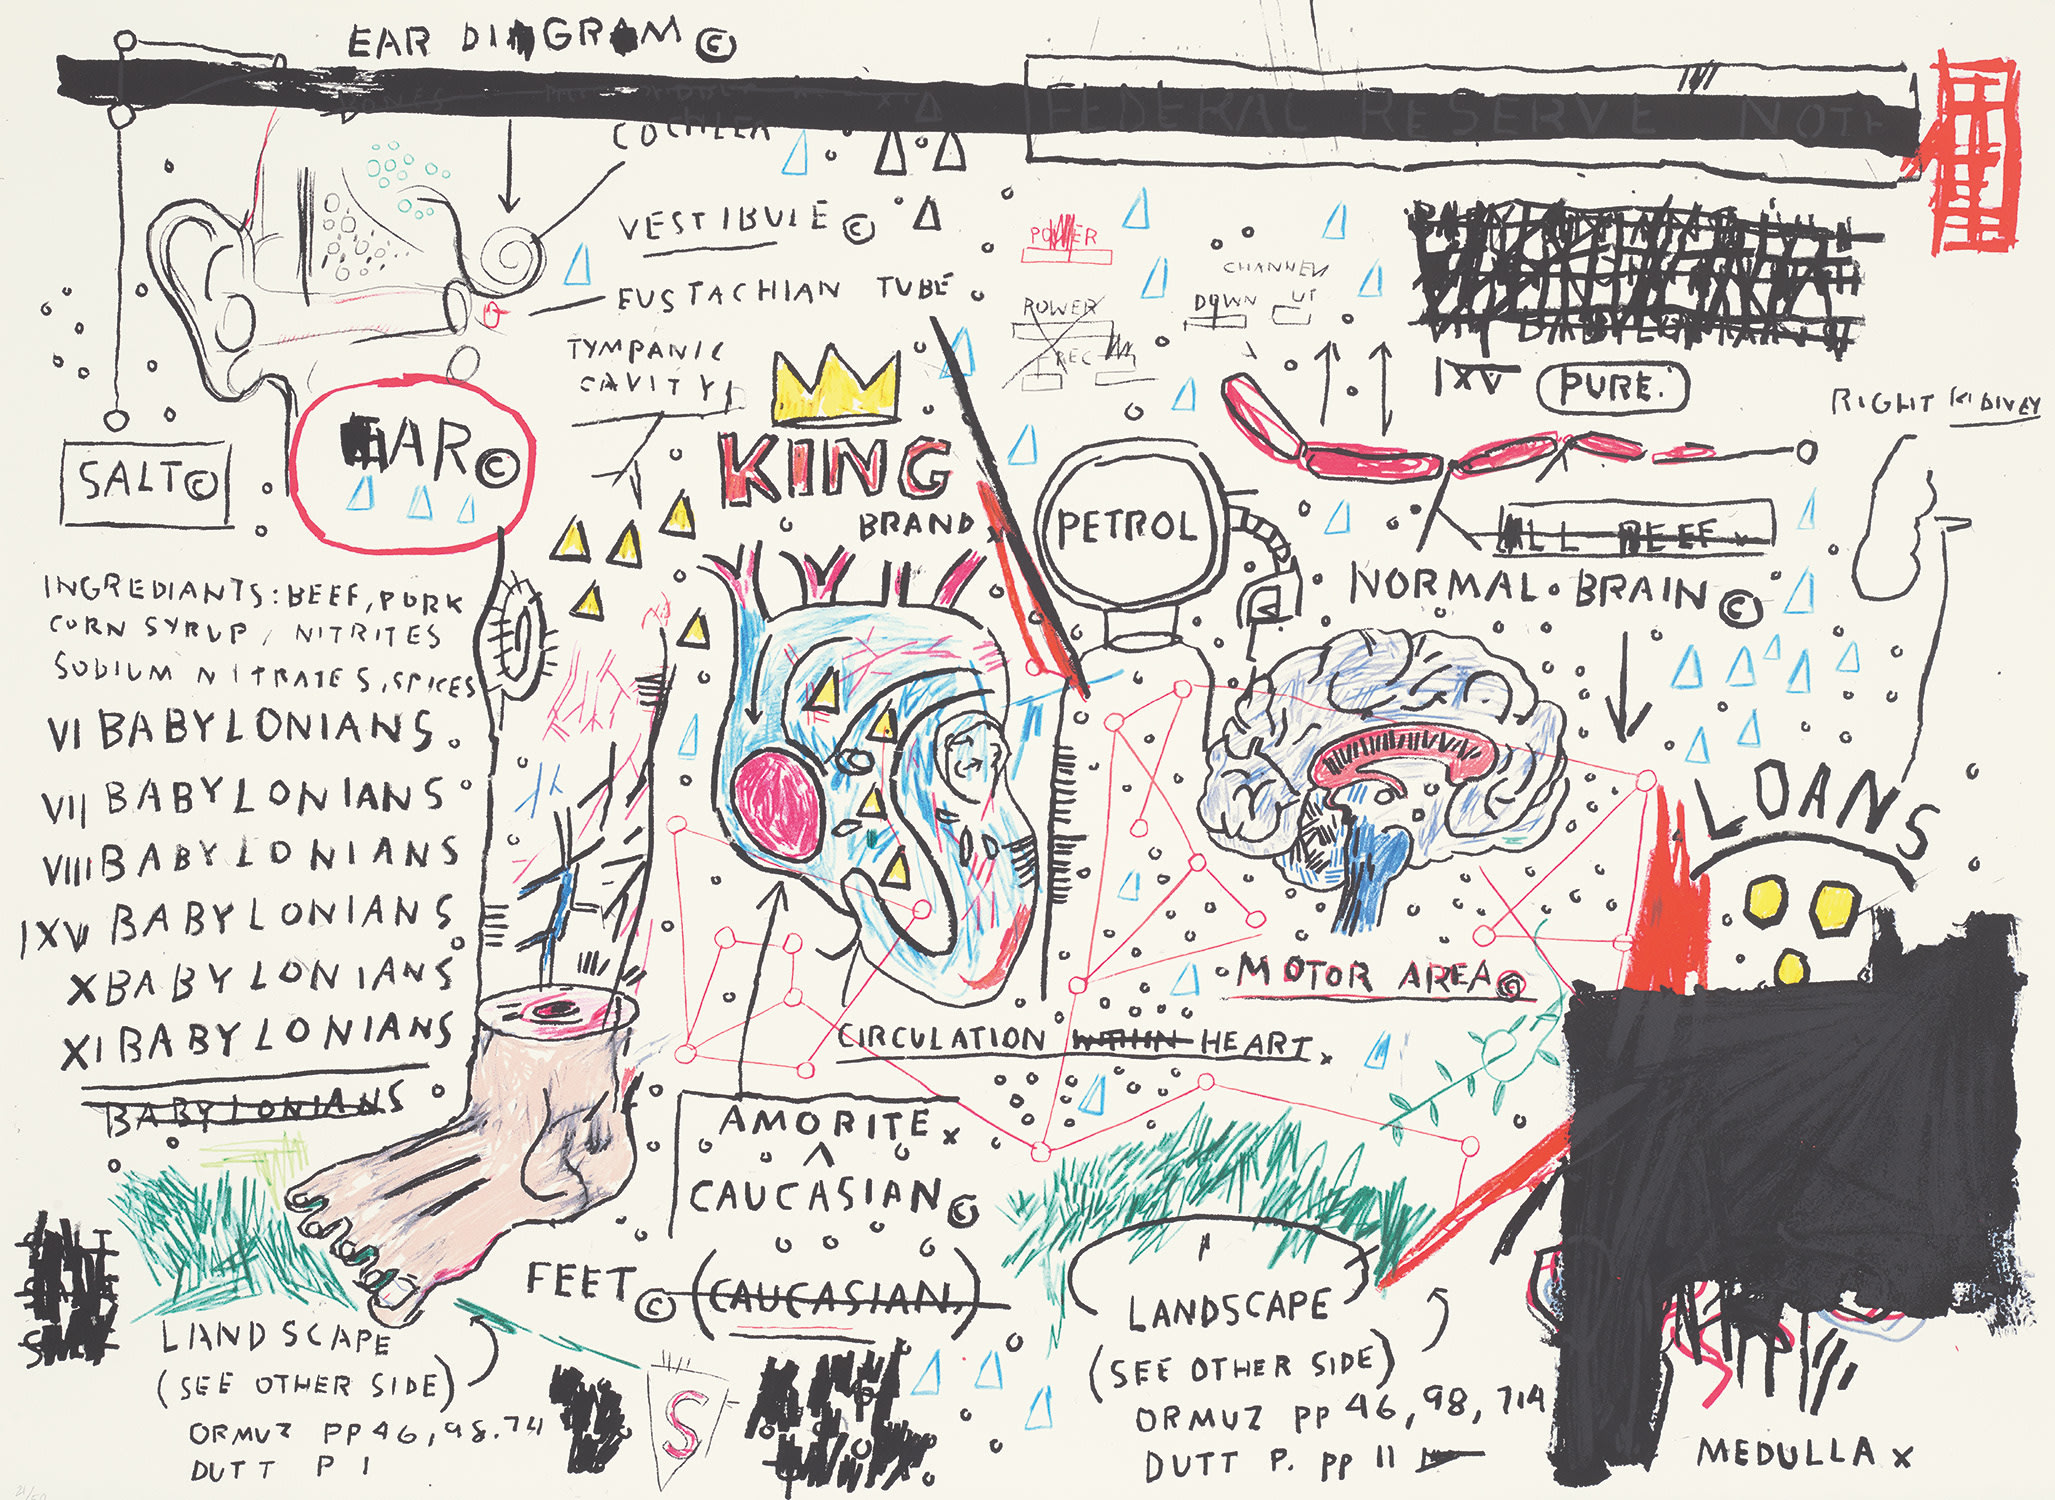 EAR DIAGRAM ©
FEDERAL RESERVE NOTE
COCHLEA
VESTIBULE ©
EUSTACHIAN TUBE
TYMPANIC
CAVITY
EAR ©
SALT ©
KING
BRAND x
POWER
POWER
REC
CHANNEL
DOWN UP
PETROL
VII BABYLONIANS
IXV PURE.
ALL BEEF
NORMAL BRAIN ©
RIGHT KIDNEY
LOANS
INGREDIANTS: BEEF, PORK
CORN SYRUP, NITRITES
SODIUM NITRATES, SPICES
VI BABYLONIANS.
VII BABYLONIANS
VIII BABYLONIANS
IXV BABYLONIANS
X BABYLONIANS
XI BABYLONIANS
BABYLONIANS
MOTOR AREA ©
CIRCULATION WITHIN HEART x
AMORITE x
CAUCASIAN ©
FEET © (CAUCASIAN.)
LANDSCAPE
(SEE OTHER SIDE)
ORMUZ PP 46, 98. 74
DUTT P 1
S
LANDSCAPE
(SEE OTHER SIDE)
ORMUZ PP 46, 98, 714
DUTT P. PP 11
MEDULLA x
21/50